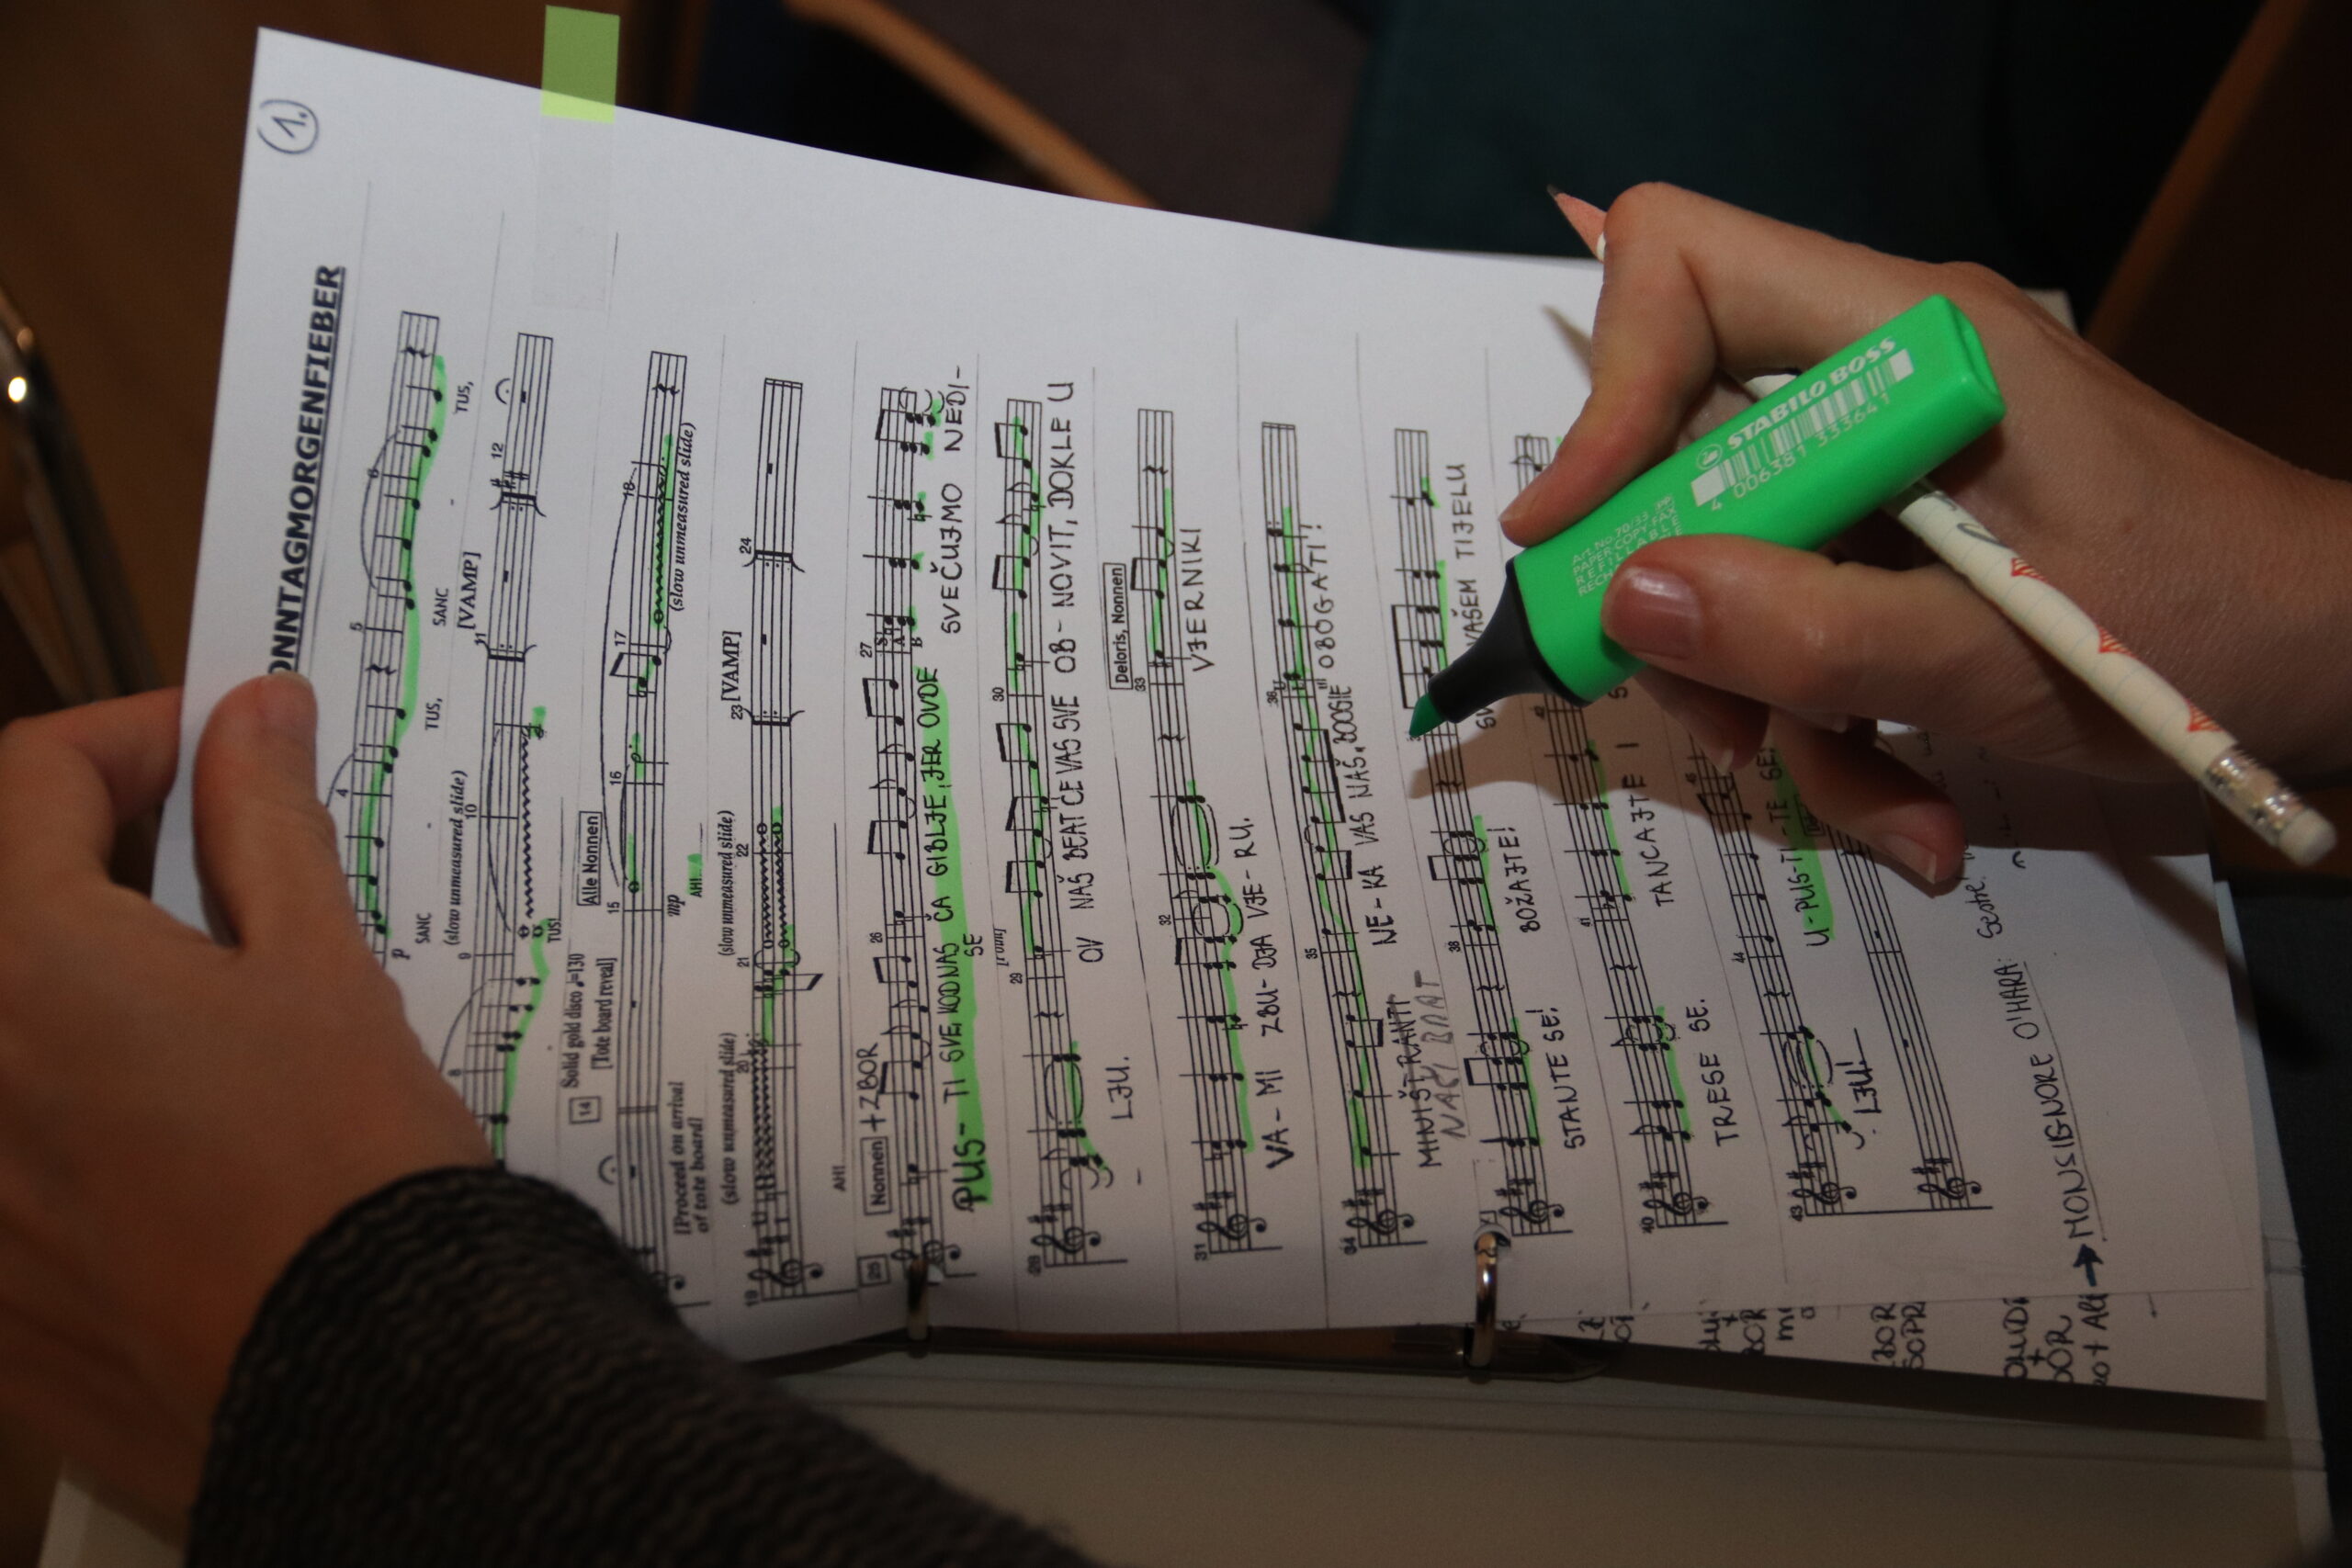 1.
ONNTAGMORGENFIEBER
4 5 6
p
SANC - TUS, SANC - TUS,
(slow unmeasured slide) [VAMP]
8 9 10 11 12
TUS!
14 Solid gold disco ♩=130
[Tote board reveal]
Alle Nonnen
15 16 17 18
mp
AH!
(slow unmeasured slide)
[Proceed on arrival
of tote board]
(slow unmeasured slide) (slow unmeasured slide) [VAMP]
19 20 21 22 23 24
AH!
25 Nonnen + ZBOR
26 27
S
A
B
PUS- TI SVE KOD NAS ČA GIBLJE, JER OVDE SVEČUJMO NEDJ-
SE
28 29 30
- LJU. OV NAŠ BEAT ĆE VAS SVE OB - NOVIT, DOKLE U
Deloris, Nonnen
31 32 33
VA - MI ZBU - DJA VJE - RU. VJERNIKI
34 35 36
MINIŠTRANTI NE - KA VAS NAŠ "BOOGIE" OBOGATI!
NAŠ BRAT
38
STANTE SE! BOŽAJTE! VAŠEM TIJELU
40 41 42
TRESE SE. TANCAJTE I
43 44 45
LJU! U - PUS - TI - TE SE!
→ MONSIGNORE O'HARA:
STABILO BOSS
4 006381 333641
Art. No. 70/33
PAPER COPY FAX
REFILLABLE